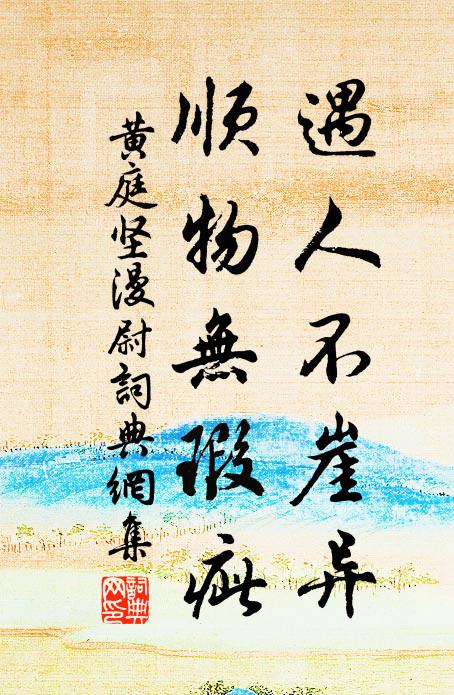 遇人不崖异
順物無瑕疵
黄庭坚漫尉詞典網集
詞典网印